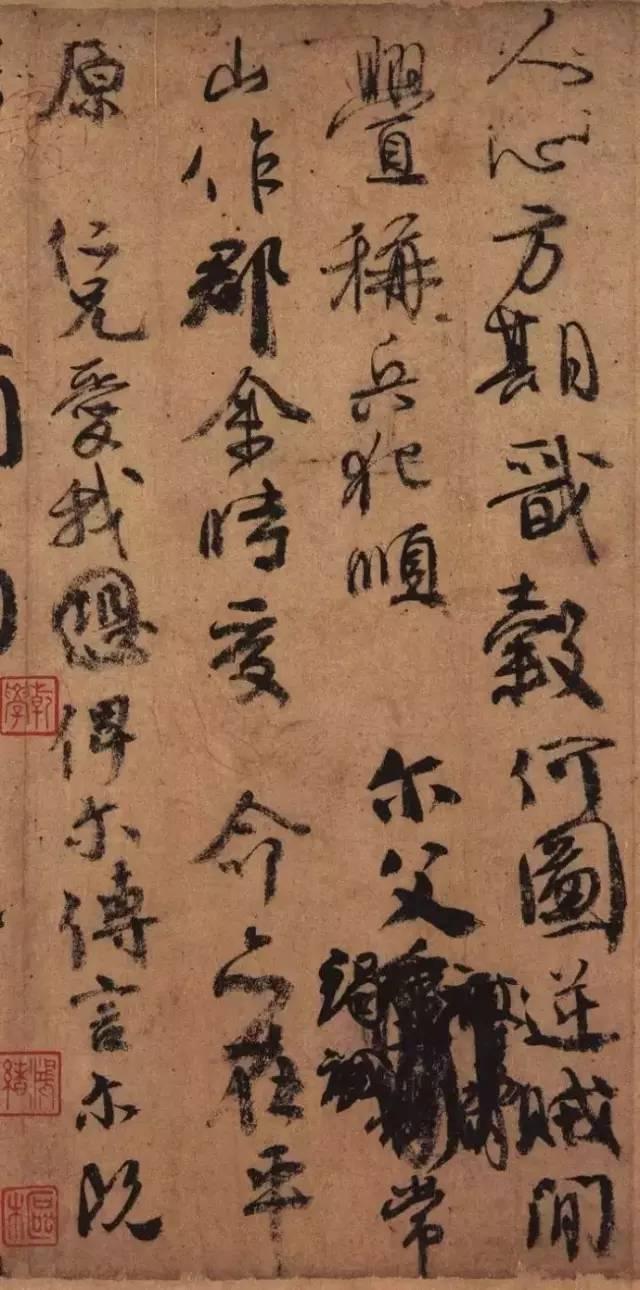 人心方期戩穀何圖逆賊間
釁稱兵犯順 尓父竭誠常
山作郡余時受 命亦在平
原 仁兄愛我恐俾尓傳言尓既
乾學
鴻緒